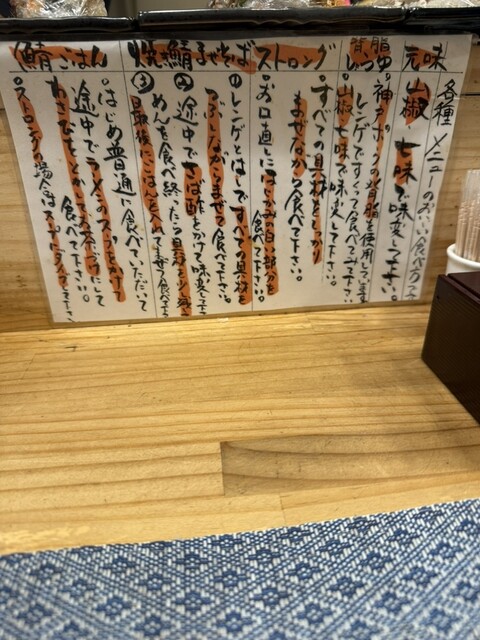 各種メニューのおいしい食べ方
元味
山椒 七味で味変して下さい。
背脂しょうゆ
。神戸ポークの背脂を使用しています
レンゲですくって食べてみて下さい
山椒、七味で味変して下さい。
ストロング
。すべての具材をしっかり
まぜながら食べて下さい。
。お口直しにはじかみの白い部分を
食べて下さい。
焼鯖まぜそば
①レンゲとはしですべての具材を
つぶしながらまぜる食べて下さい。
②途中でさば酢をかけて味変して下さい
めんを食べ終ったら具材を少し残して
③最後にごはんを入れてまぜて食べて下さい
鯖ごはん
。はじめ普通に食べていただいて
途中でラーメンのスープをかけて
わさびをとかしてお茶づけにして
食べて下さい。
。ストロングの場合はスープにダイブして下さい